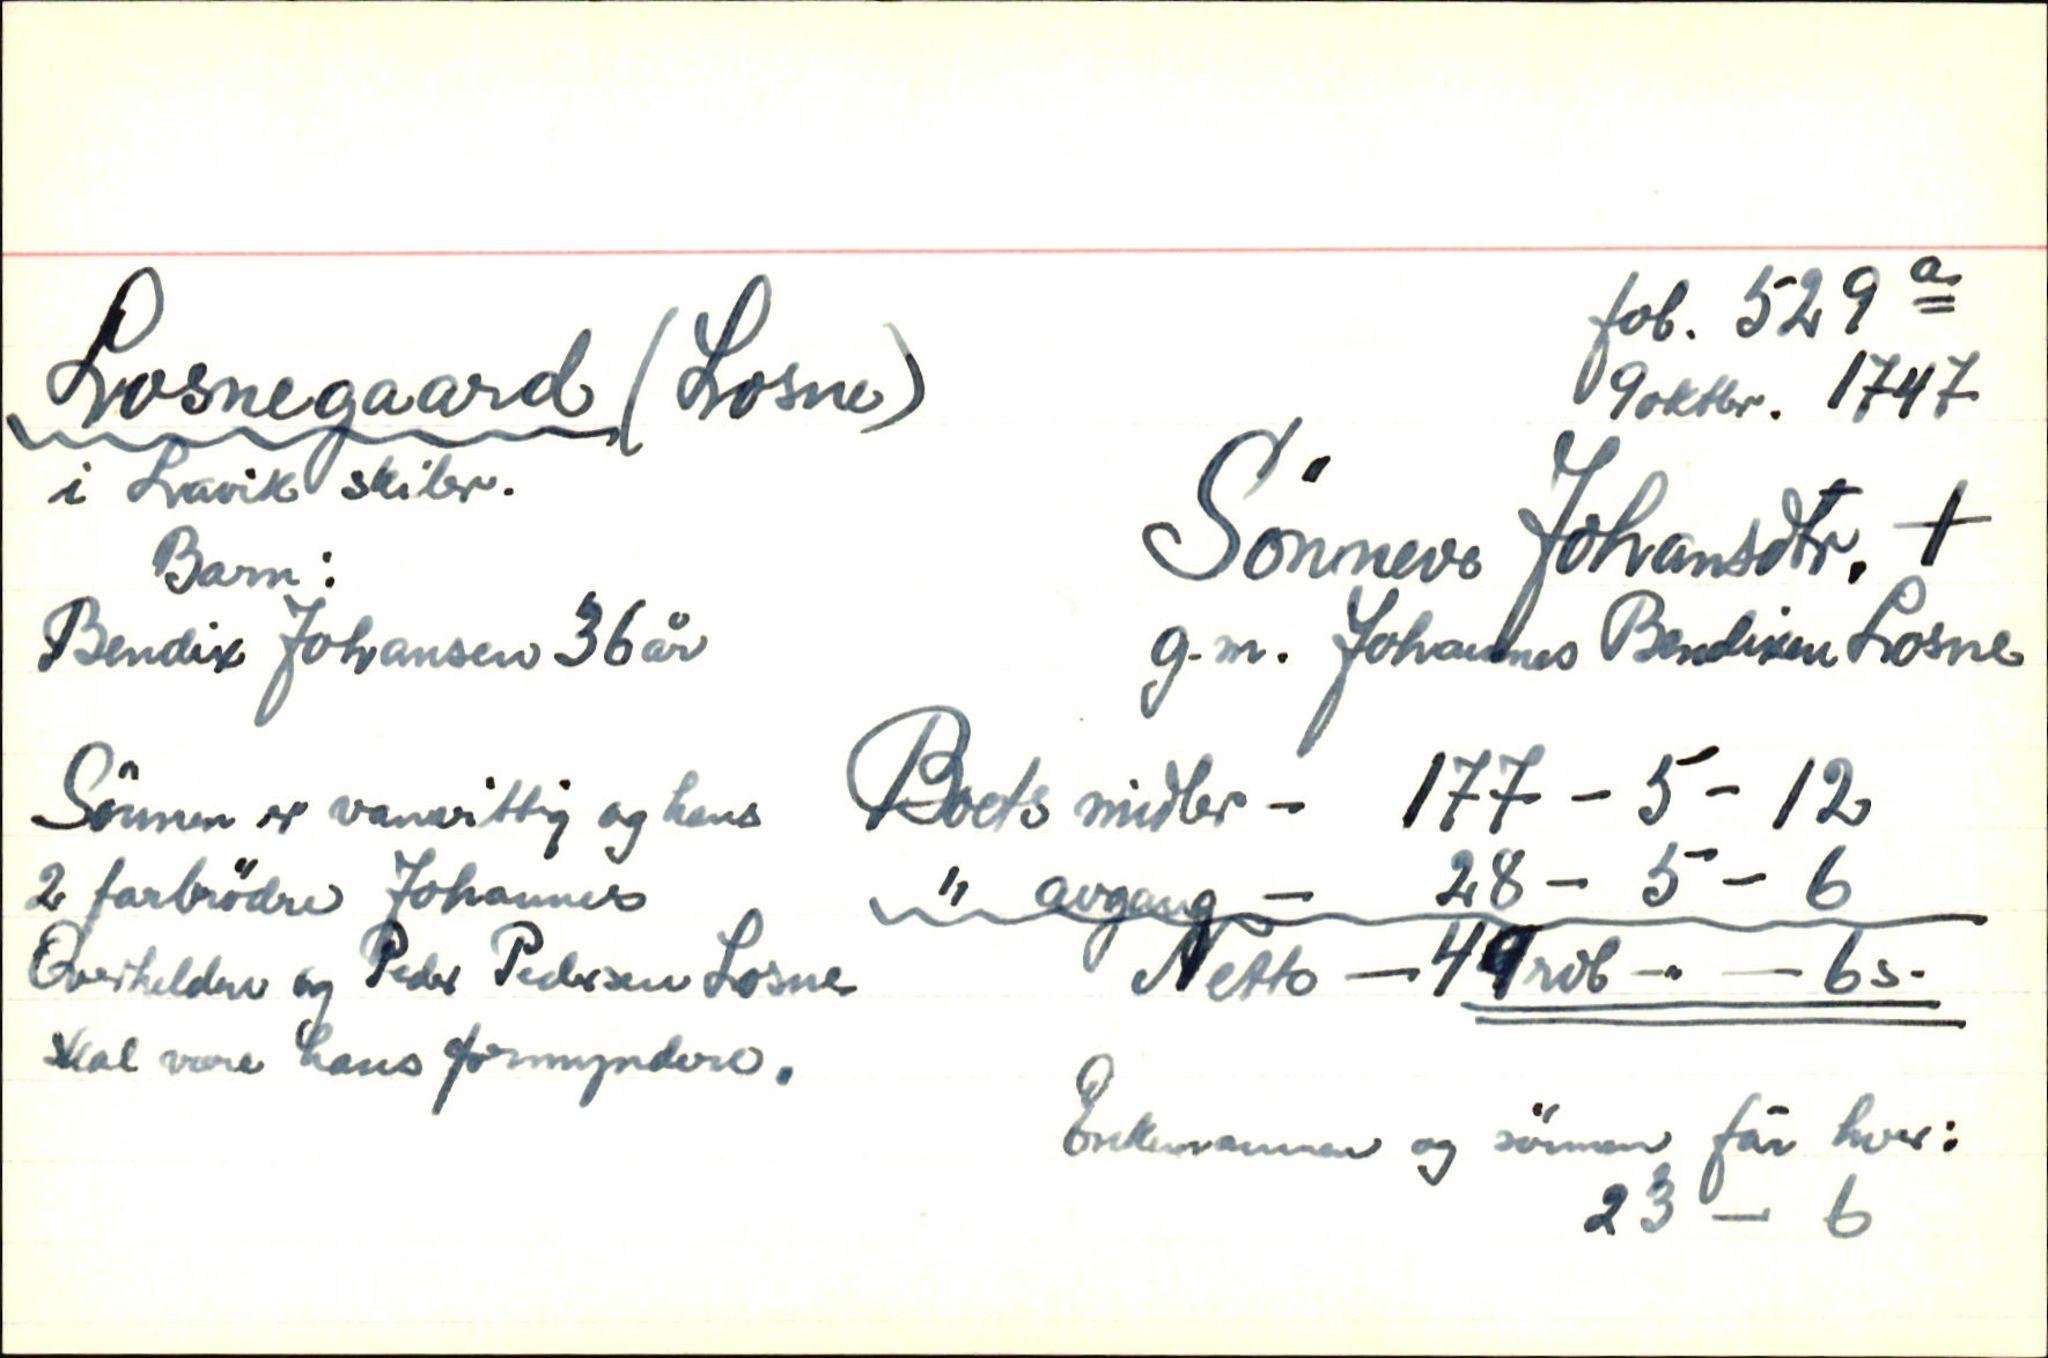 Losnegaard (Losne)
i Lavik skibr.
Barn:
Bendix Johansen 36 år
Sönnen er vanvittig og hans
2 farbrödre Johannes
Överkelden og Peder Pedersen Losne
skal være hans formyndere.
fol. 529 a
9 oktbr. 1747
Sönneve Johansdtr. +
g.m. Johannes Bendixen Losne
Boets midler - 177 - 5 - 12
" avgang - 28 - 5 - 6
Netto - 49 rdl - " - 6 s.
Enkemannen og sönnen får hver:
23 - 6